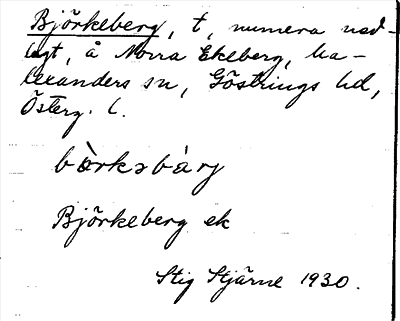 Björkeberg, t, numera ned-
lagt, å Norra Ekeberg, Ha-
lexanders sn, Göstrings hd,
Österg. l.
bö̀rkəbàrj
Björkeberg ek
Stig Stjärne 1930.